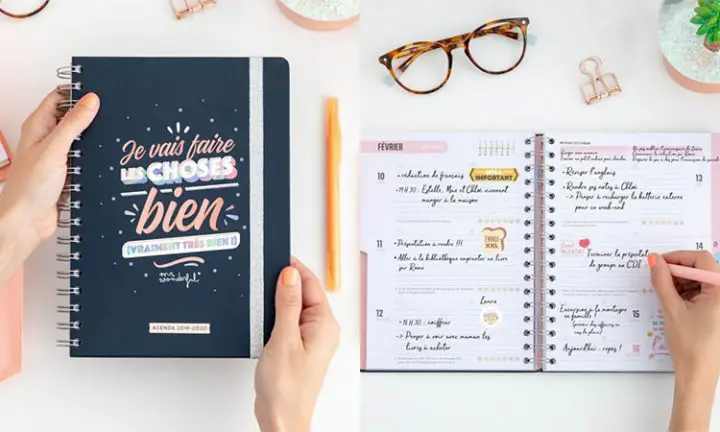 Je vais faire
LES CHOSES
bien
(VRAIMENT TRÈS BIEN !)
mr.
wonderful
AGENDA 2019-2020
FÉVRIER
10
• rédaction de français
IMPORTANT
• 19 H 30 : Estelle, Max et Chloé viennent
manger à la maison
11
• Présentation à rendre !!!
• Aller à la bibliothèque emprunter un livre
sur Rome
XXL
Laura
12
• 18 H 30 : coiffeur
→ Penser à voir avec maman les
livres à acheter
• Réviser l'anglais
• Rendre ses notes à Chloé
→ Penser à recharger la batterie externe
pour ce week-end
14
Terminer la
de groupe au CDI
Excursion à la montagne
en famille !
(prévoir des affaires en
cas de pluie)
15
Aujourd'hui : repos !
16